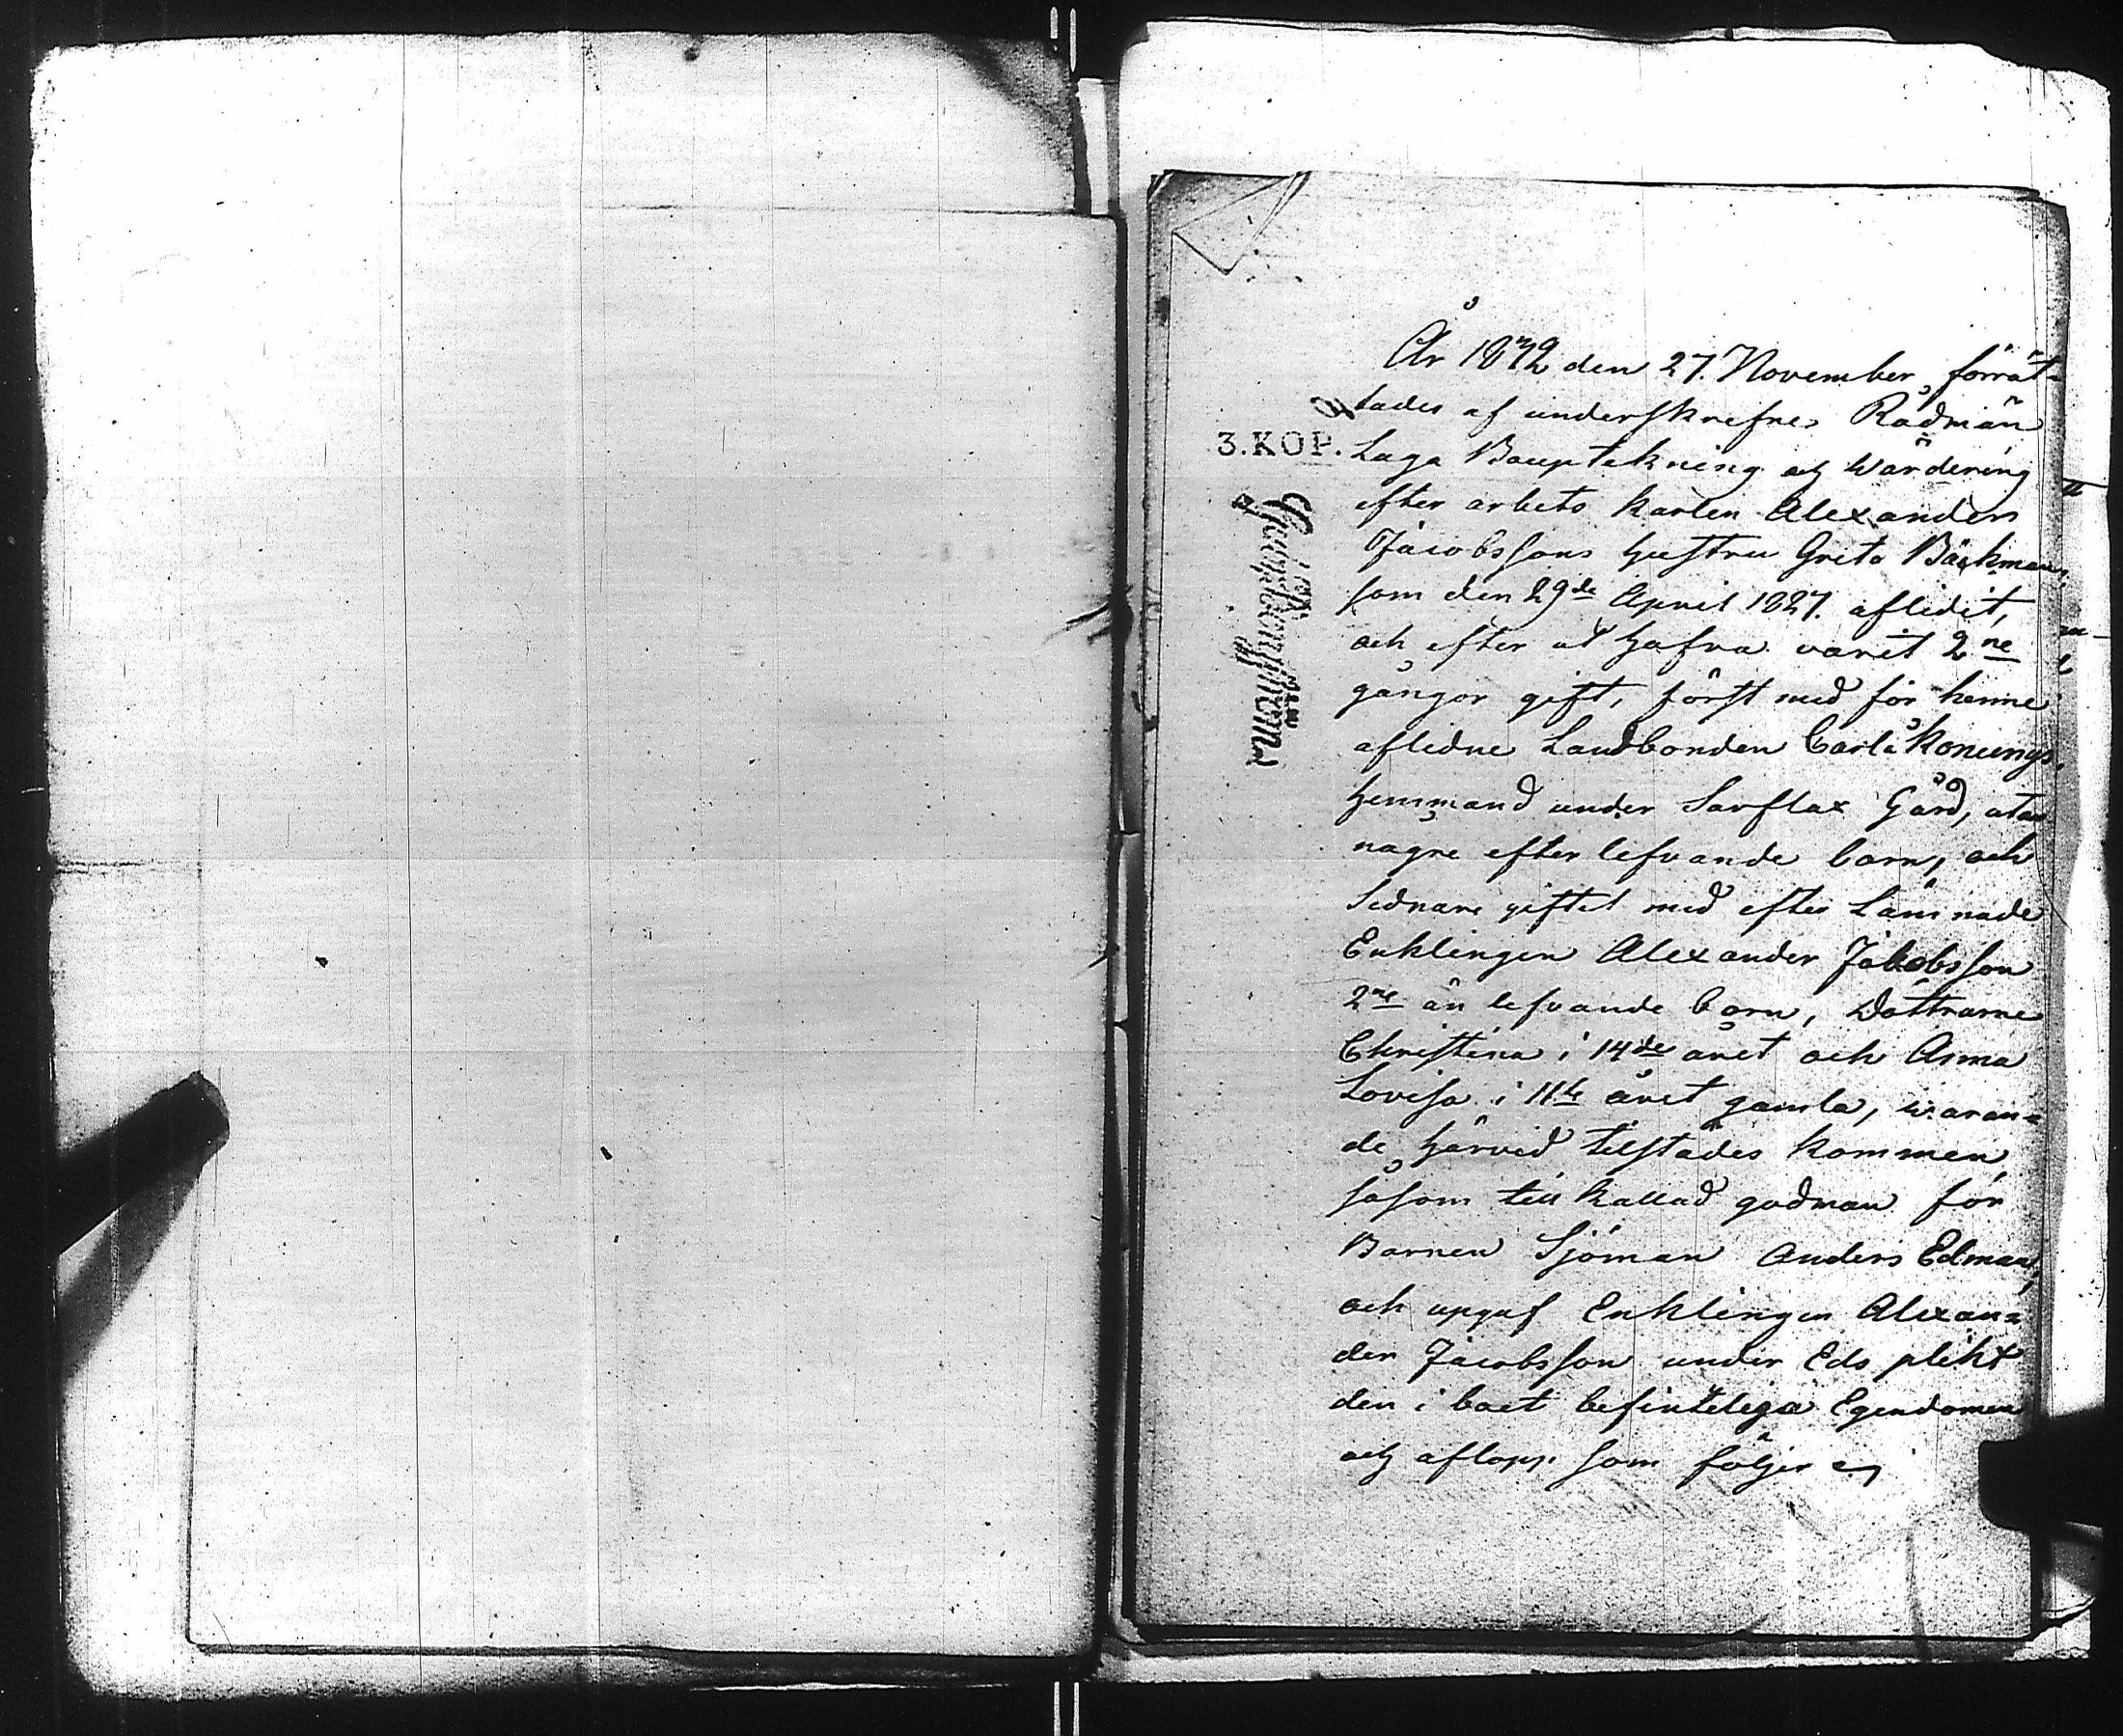 År 1832 den 27. November, förrät-
tades af underskrefne Rådmän
3. KOP.
Laga Bouptekning och Wärdering
efter arbets karlen Alexander
Jacobssons hustru Greta Bäckman,
som den 29de April 1827. aflidit,
och efter at hafva varit 2ne
gångor gift, först med för henne
aflidne Landbonden Carl å Konungs
hemmand under Sarflax Gård, utan
någre efterlefvande barn, och
sednare giftet med efter Lämnade
Enklingen Alexander Jakobsson
2ne än lefvande barn, Döttrarne
Christina i 14de året och Anna
Lovisa i 11te året gamla, waran=
de härvid tilstädes kommen,
såsom till kallad godman för
Barnen Sjöman Anders Edman,
och upgaf Enklingen Alexan=
der Jacobsson under Eds plikt
den i boet befinteliga Egendomen
och aflopp som följer